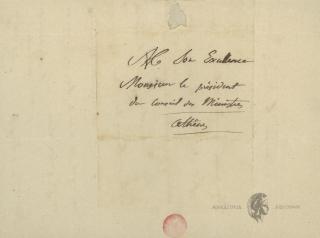 A Son Excellence
Monsieur le président
du conseil des Ministres
Athènes